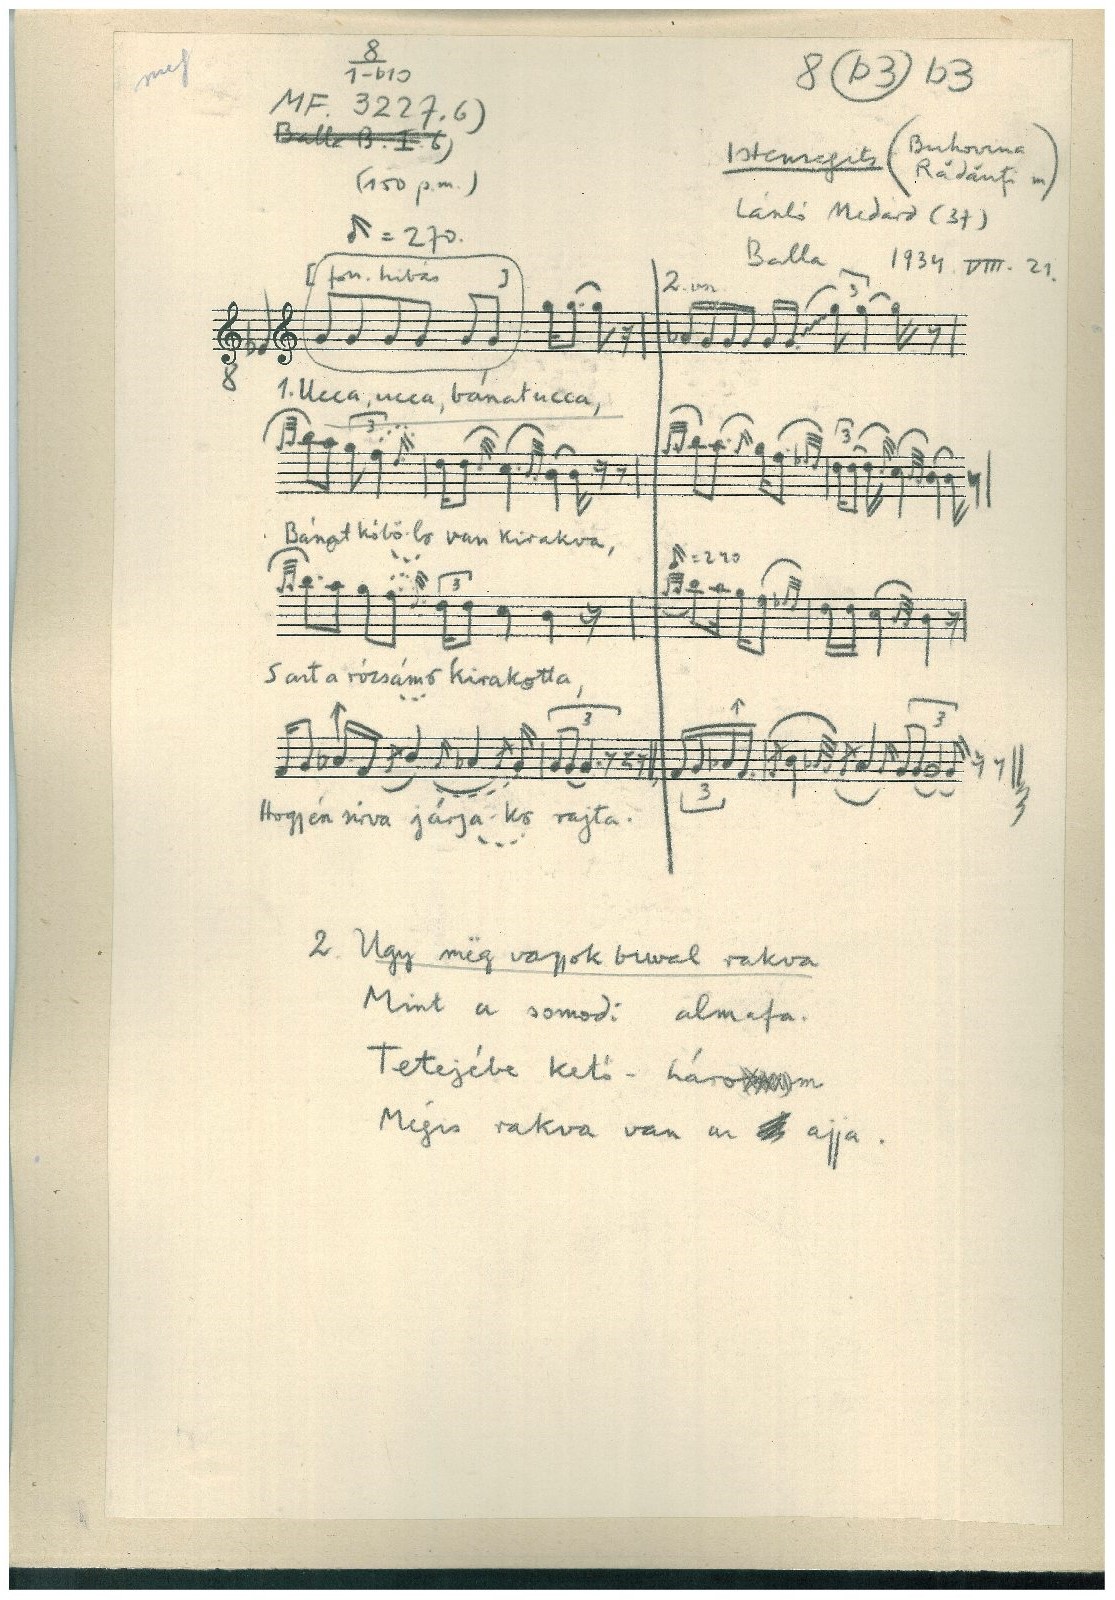 8
1-b10
MF. 3227.6)
Balla B. I 6)
(150 p.m.)
= 270.
8 (b3) b3
Istensegits (Bukovina
Rádáuti m)
László Medárd (37)
Balla 1934. VIII. 21.
[ fon. hibás ]
2. vsz.
3
8
1. Ucca, ucca, bánat ucca,
3
3
Bánat kőbő-ls van kirakva,
= 240
3
S azt a rózsám kirakotta,
3
3
3
Hogy én sírva járja-ks rajta.
2. Ugy még vagyok buval rakva
Mint a somodi almafa.
Tetejébe kető - három
Mégis rakva van az ajja.